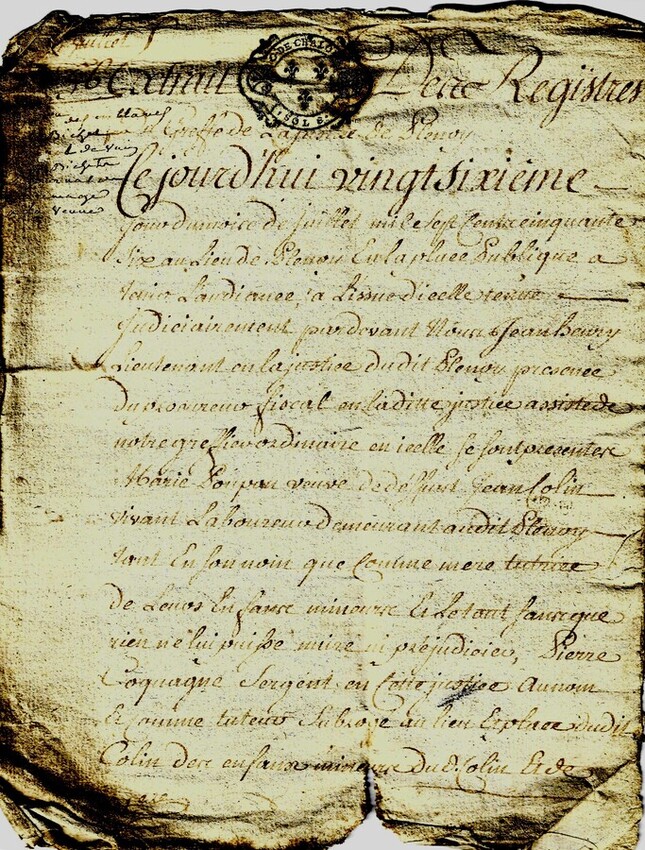 juillet
Extrait Des Registres
du Greffe de La justice de Plenoy
GEN DE CHALONS
2 SOLS
Ce jourd'hui vingt sixième
jour du mois de juillet mil sept Cent cinquante
Six au Lieu de Plenoy En la place Publique a
tenir L'audiance, a L'issue d'icelle tenue
Judiciairement pardevant Nous Jean henry
Lieutenant en la justice dudit Plenoy presence
Du procureur fiscal en laditte justice assisté de
notre greffier ordinaire en icelle se sont presentes
Marie Poupon veuve de deffunt Jean Colin
vivant Laboureur demeurant audit Plenoy
tant En son nom que Comme mere tutrice
de Leurs Enfans mineurs Et le tout sans que
rien ne lui puisse nuire ni prejudicier, Pierre
Coquagne Sergent en Cette justice au nom
Et comme tuteur Subrogé au lieu Et place dudit
Colin des enfans mineurs du d. Colin Et de